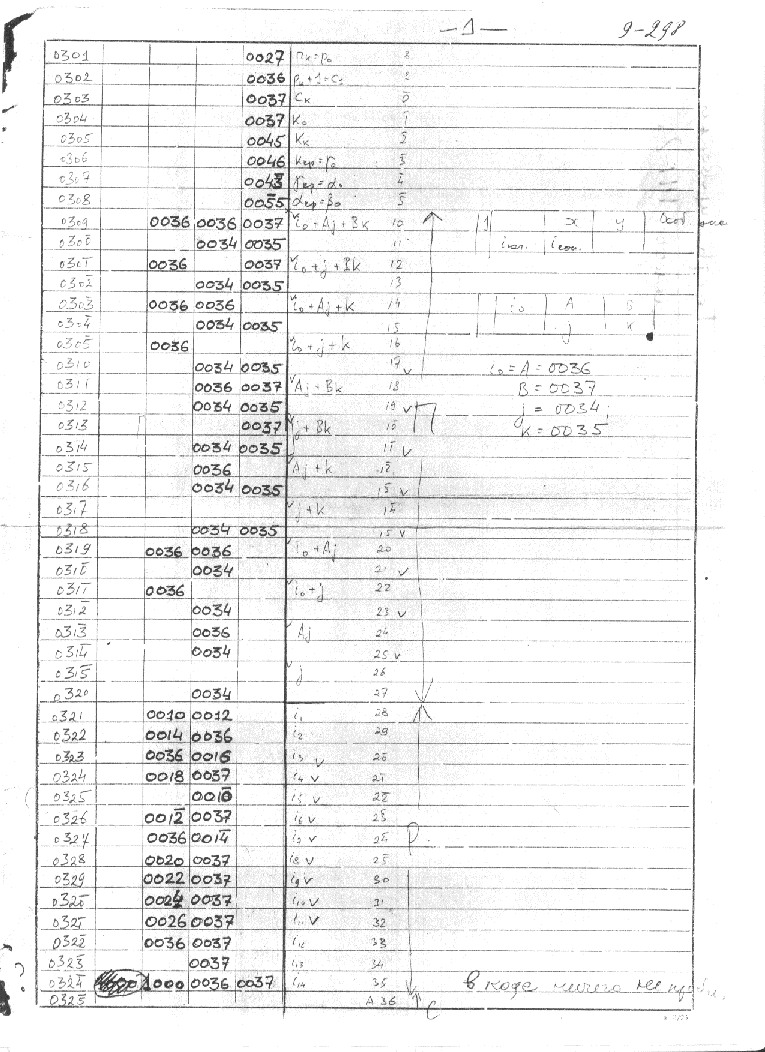 — 1 — 9-298
0301 0027 πκ=ρ₀
0302 0036
0303 0037 Cк
0304 0037 K₀ 1̄
0305 0045 Kк 2̄
0306 0046 3̄
0307 4̄
0308 0055 5̄
0309 0036 0036 0037 i₀+Aj+Bk 10
030̄0̄ 0034 0035 11
030̄1̄ 0036 0037 i₀+j+Bk 12
030̄2̄ 0034 0035 13
030̄3̄ 0036 0036 i₀+Aj+k 14
030̄4̄ 0034 0035 15
030̄5̄ 0036 i₀+j+k 16
0310 0034 0035 17 v
0311 0036 0037 Aj+Bk 18
0312 0034 0035 19 v
0313 0037 j+Bk 1̄0̄
0314 0034 0035 1̄1̄ v
0315 0036 Aj+k 1̄2̄
0316 0034 0035 1̄3̄ v
0317 j+k 1̄4̄
0318 0034 0035 1̄5̄ v
0319 0036 0036 i₀+Aj 20
031̄0̄ 0034 21 v
031̄1̄ 0036 i₀+j 22
031̄2̄ 0034 23 v
031̄3̄ 0036 Aj 24
031̄4̄ 0034 25 v
031̄5̄ j 26
0320 0034 27
0321 0010 0012 i₁ 28
0322 0014 0036 i₂ 29
0323 0036 0016 i₃ v 2̄0̄
0324 0018 0037 i₄ v 2̄1̄
0325 001̄0̄ i₅ v 2̄2̄
0326 001̄2̄ 0037 i₆ v 2̄3̄
0327 0036 001̄4̄ i₇ v 2̄4̄
0328 0020 0037 i₈ v 2̄5̄
0329 0022 0037 i₉ v 30
032̄0̄ 0024 0037 i₁₀ v 31
032̄1̄ 0026 0037 i₁₁ v 32
032̄2̄ 0036 0037 i₁₂ 33
032̄3̄ 0037 i₁₃ 34
032̄4̄ 1000 0036 0037 i₁₄ 35
032̄5̄ A 36
1 x y
i₀ A B
j k
i₀=A=0036
B=0037
j=0034
k=0035
в коде ничего не